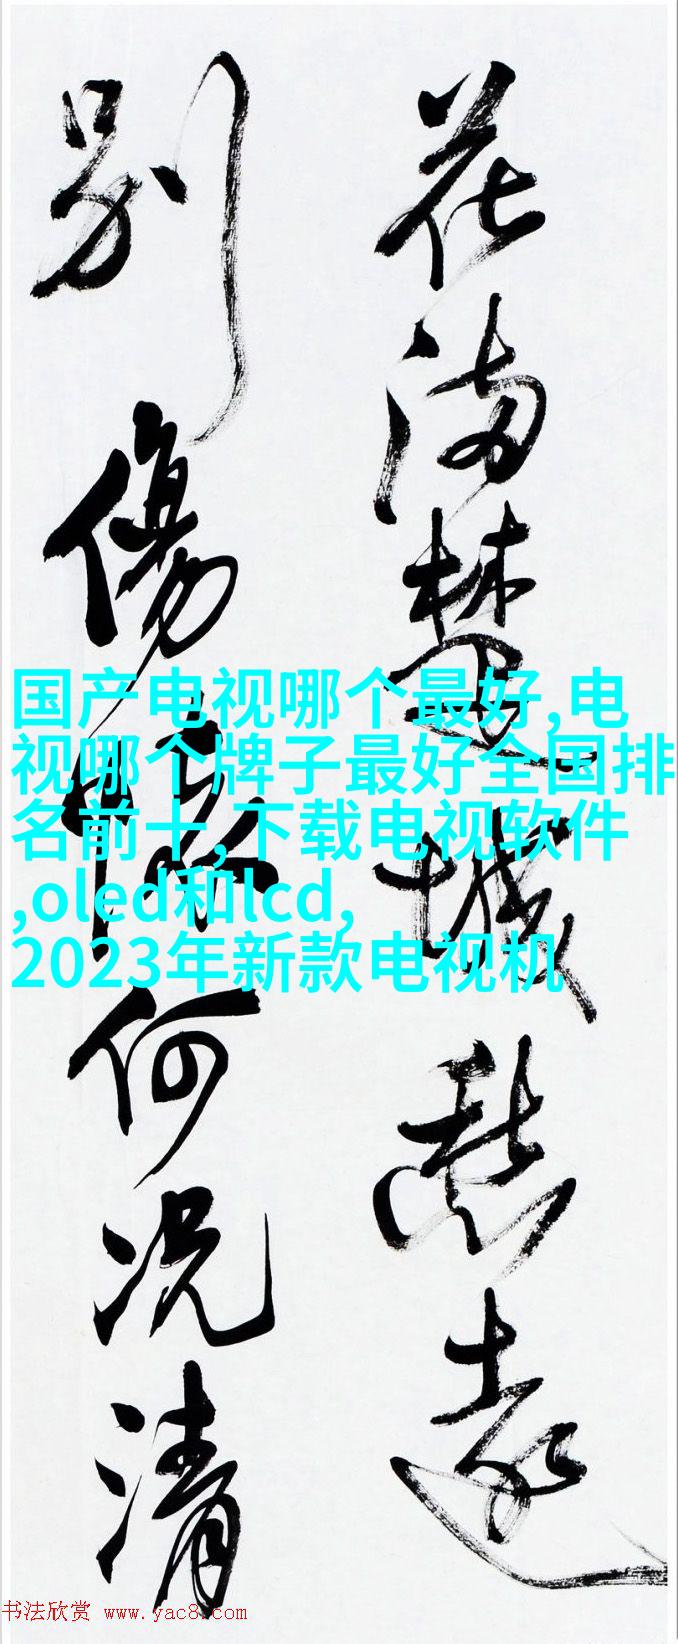 花滿楚城愁遠
别傷懷何况清
国产电视哪个最好,电
视哪个牌子最好全国排
名前十,下载电视软件
,oled和lcd,
2023年新款电视机
书法欣赏 www.yac8.com